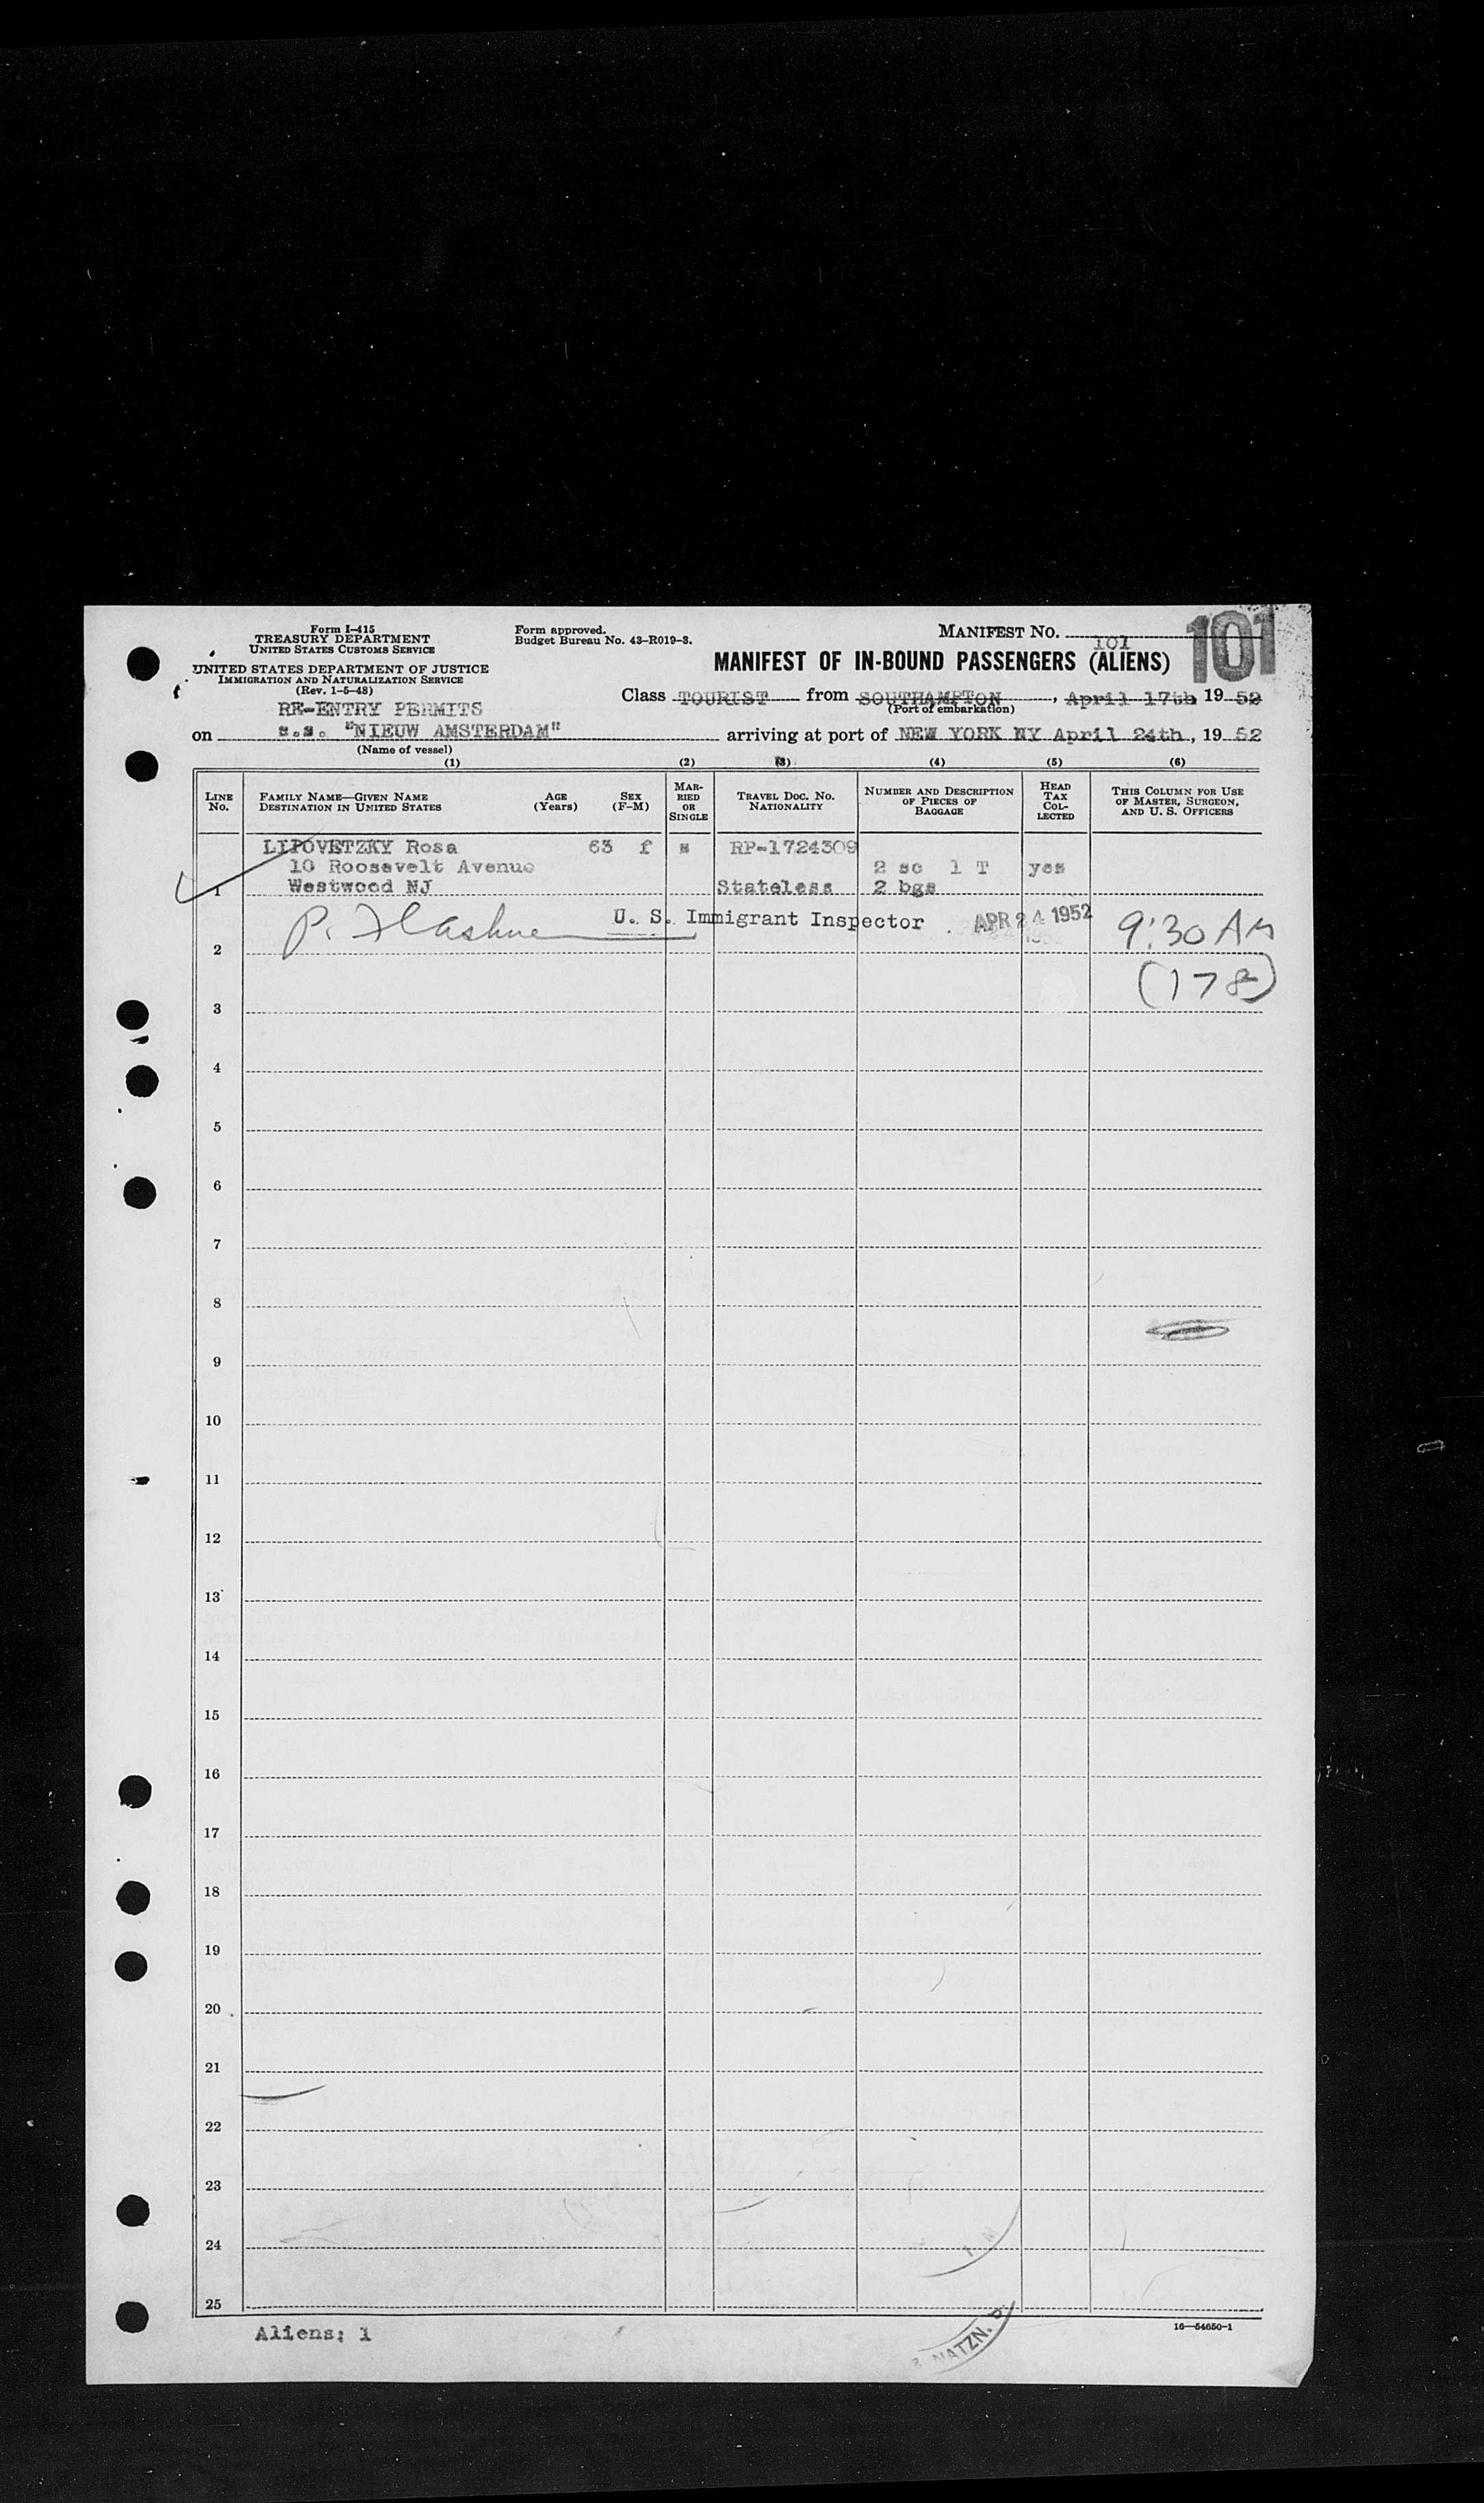 Form I-415
TREASURY DEPARTMENT
UNITED STATES CUSTOMS SERVICE
UNITED STATES DEPARTMENT OF JUSTICE
IMMIGRATION AND NATURALIZATION SERVICE
(Rev. 1-5-48)
Form approved.
Budget Bureau No. 43-R019-3.
MANIFEST NO. 101
101
MANIFEST OF IN-BOUND PASSENGERS (ALIENS)
Class TOURIST from SOUTHAMPTON, April 17th 19 52
(Port of embarkation)
RE-ENTRY PERMITS
on s.s. "NIEUW AMSTERDAM" arriving at port of NEW YORK NY April 24th, 19 52
(Name of vessel)
(1) (2) (3) (4) (5) (6)
LINE No.
FAMILY NAME—GIVEN NAME
DESTINATION IN UNITED STATES
AGE (Years)
SEX (F-M)
MARRIED OR SINGLE
TRAVEL DOC. NO. NATIONALITY
NUMBER AND DESCRIPTION OF PIECES OF BAGGAGE
HEAD TAX COLLECTED
THIS COLUMN FOR USE OF MASTER, SURGEON, AND U. S. OFFICERS
LIPOVETZKY Rosa 63 f RP-1724309
10 Roosevelt Avenue 2 sc 1 T yes
1 Westwood NJ Stateless 2 bgs
U. S. Immigrant Inspector APR 24 1952 9:30 AM
2
(178)
3
4
5
6
7
8
9
10
11
12
13
14
15
16
17
18
19
20
21
22
23
24
25
Aliens: 1
NATZN.
16—54650-1